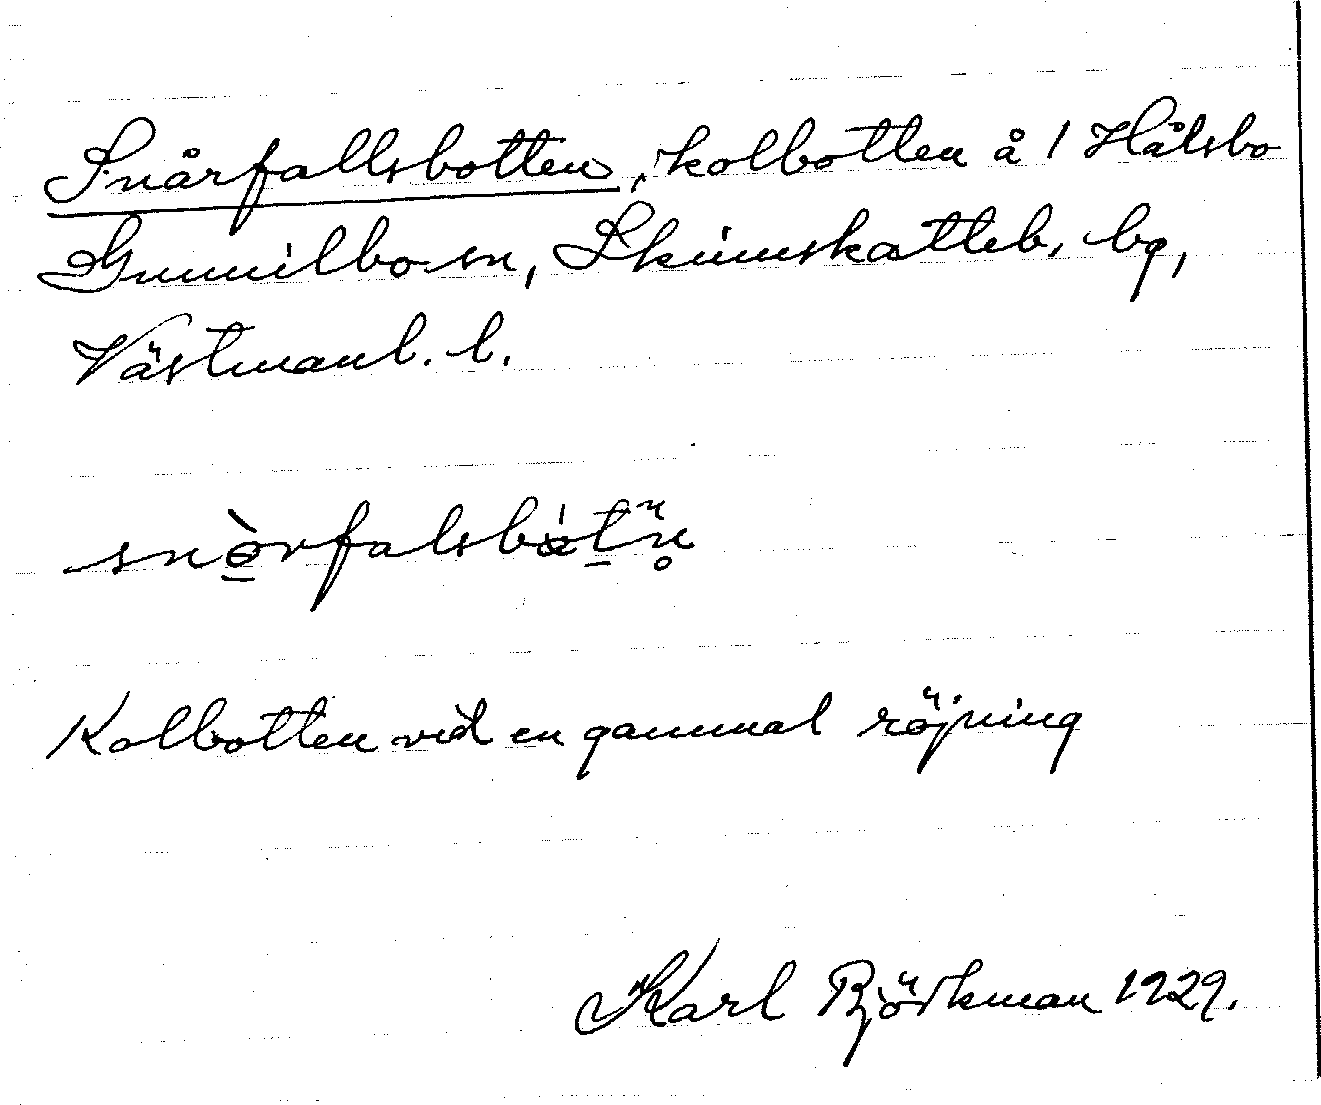 Snårfallsbotten, kolbotten å 1 Hålsbo
Gunnilbo sn, Skinnskatteb. bg,
Västmanl. l.
snòrfalsbòtn̥
Kolbotten vid en gammal röjning
Karl Björkman 1929.